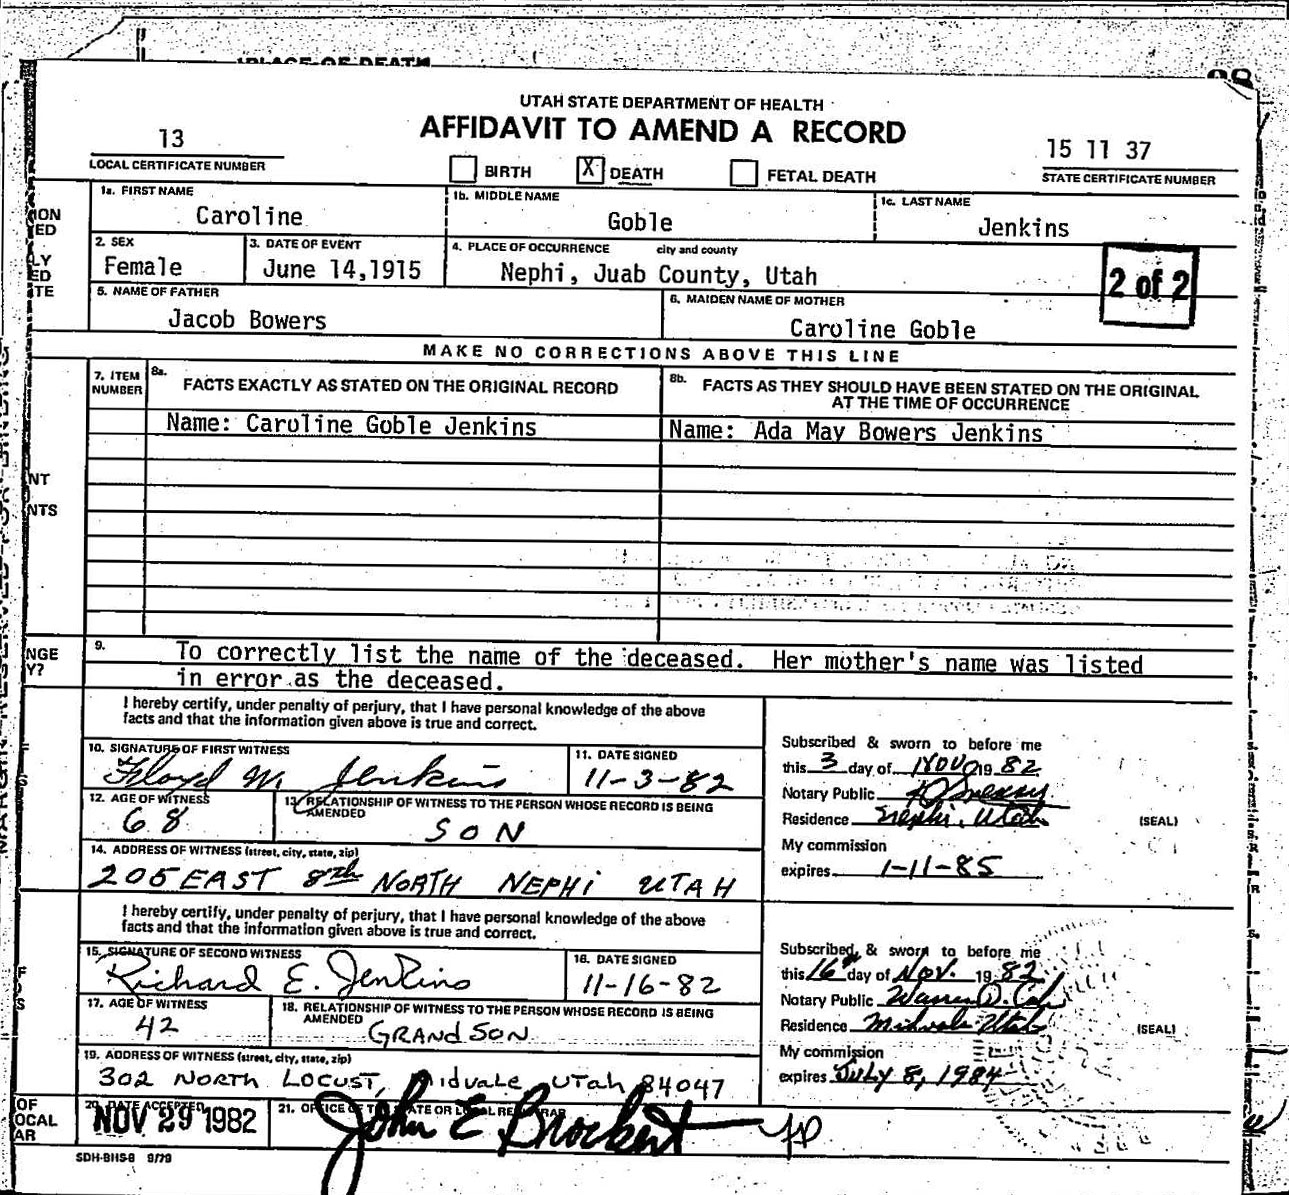 PLACE OF DEATH
UTAH STATE DEPARTMENT OF HEALTH
AFFIDAVIT TO AMEND A RECORD
13
LOCAL CERTIFICATE NUMBER
BIRTH
X DEATH
FETAL DEATH
15 11 37
STATE CERTIFICATE NUMBER
1a. FIRST NAME
Caroline
1b. MIDDLE NAME
Goble
1c. LAST NAME
Jenkins
2. SEX
Female
3. DATE OF EVENT
June 14,1915
4. PLACE OF OCCURRENCE city and county
Nephi, Juab County, Utah
2 of 2
5. NAME OF FATHER
Jacob Bowers
6. MAIDEN NAME OF MOTHER
Caroline Goble
MAKE NO CORRECTIONS ABOVE THIS LINE
7. ITEM NUMBER
8a. FACTS EXACTLY AS STATED ON THE ORIGINAL RECORD
8b. FACTS AS THEY SHOULD HAVE BEEN STATED ON THE ORIGINAL
AT THE TIME OF OCCURRENCE
Name: Caroline Goble Jenkins
Name: Ada May Bowers Jenkins
9. To correctly list the name of the deceased. Her mother's name was listed
in error as the deceased.
I hereby certify, under penalty of perjury, that I have personal knowledge of the above
facts and that the information given above is true and correct.
10. SIGNATURE OF FIRST WITNESS
Floyd W. Jenkins
11. DATE SIGNED
11-3-82
12. AGE OF WITNESS
68
13. RELATIONSHIP OF WITNESS TO THE PERSON WHOSE RECORD IS BEING
AMENDED
SON
14. ADDRESS OF WITNESS (street, city, state, zip)
205 EAST 8th NORTH NEPHI UTAH
Subscribed & sworn to before me
this 3 day of NOV 19 82
Notary Public
Residence Nephi, Utah
(SEAL)
My commission
expires 1-11-85
I hereby certify, under penalty of perjury, that I have personal knowledge of the above
facts and that the information given above is true and correct.
15. SIGNATURE OF SECOND WITNESS
Richard E. Jenkins
16. DATE SIGNED
11-16-82
17. AGE OF WITNESS
42
18. RELATIONSHIP OF WITNESS TO THE PERSON WHOSE RECORD IS BEING
AMENDED
GRANDSON
19. ADDRESS OF WITNESS (street, city, state, zip)
302 NORTH LOCUST, Midvale Utah 84047
Subscribed & sworn to before me
this 16th day of Nov. 19 82
Notary Public Warren D.
Residence Midvale Utah
(SEAL)
My commission
expires JULY 8, 1984
20. DATE ACCEPTED
NOV 29 1982
21. OFFICE OF STATE OR LOCAL REGISTRAR
John E Brockert
SDH-BHS-8 9/79